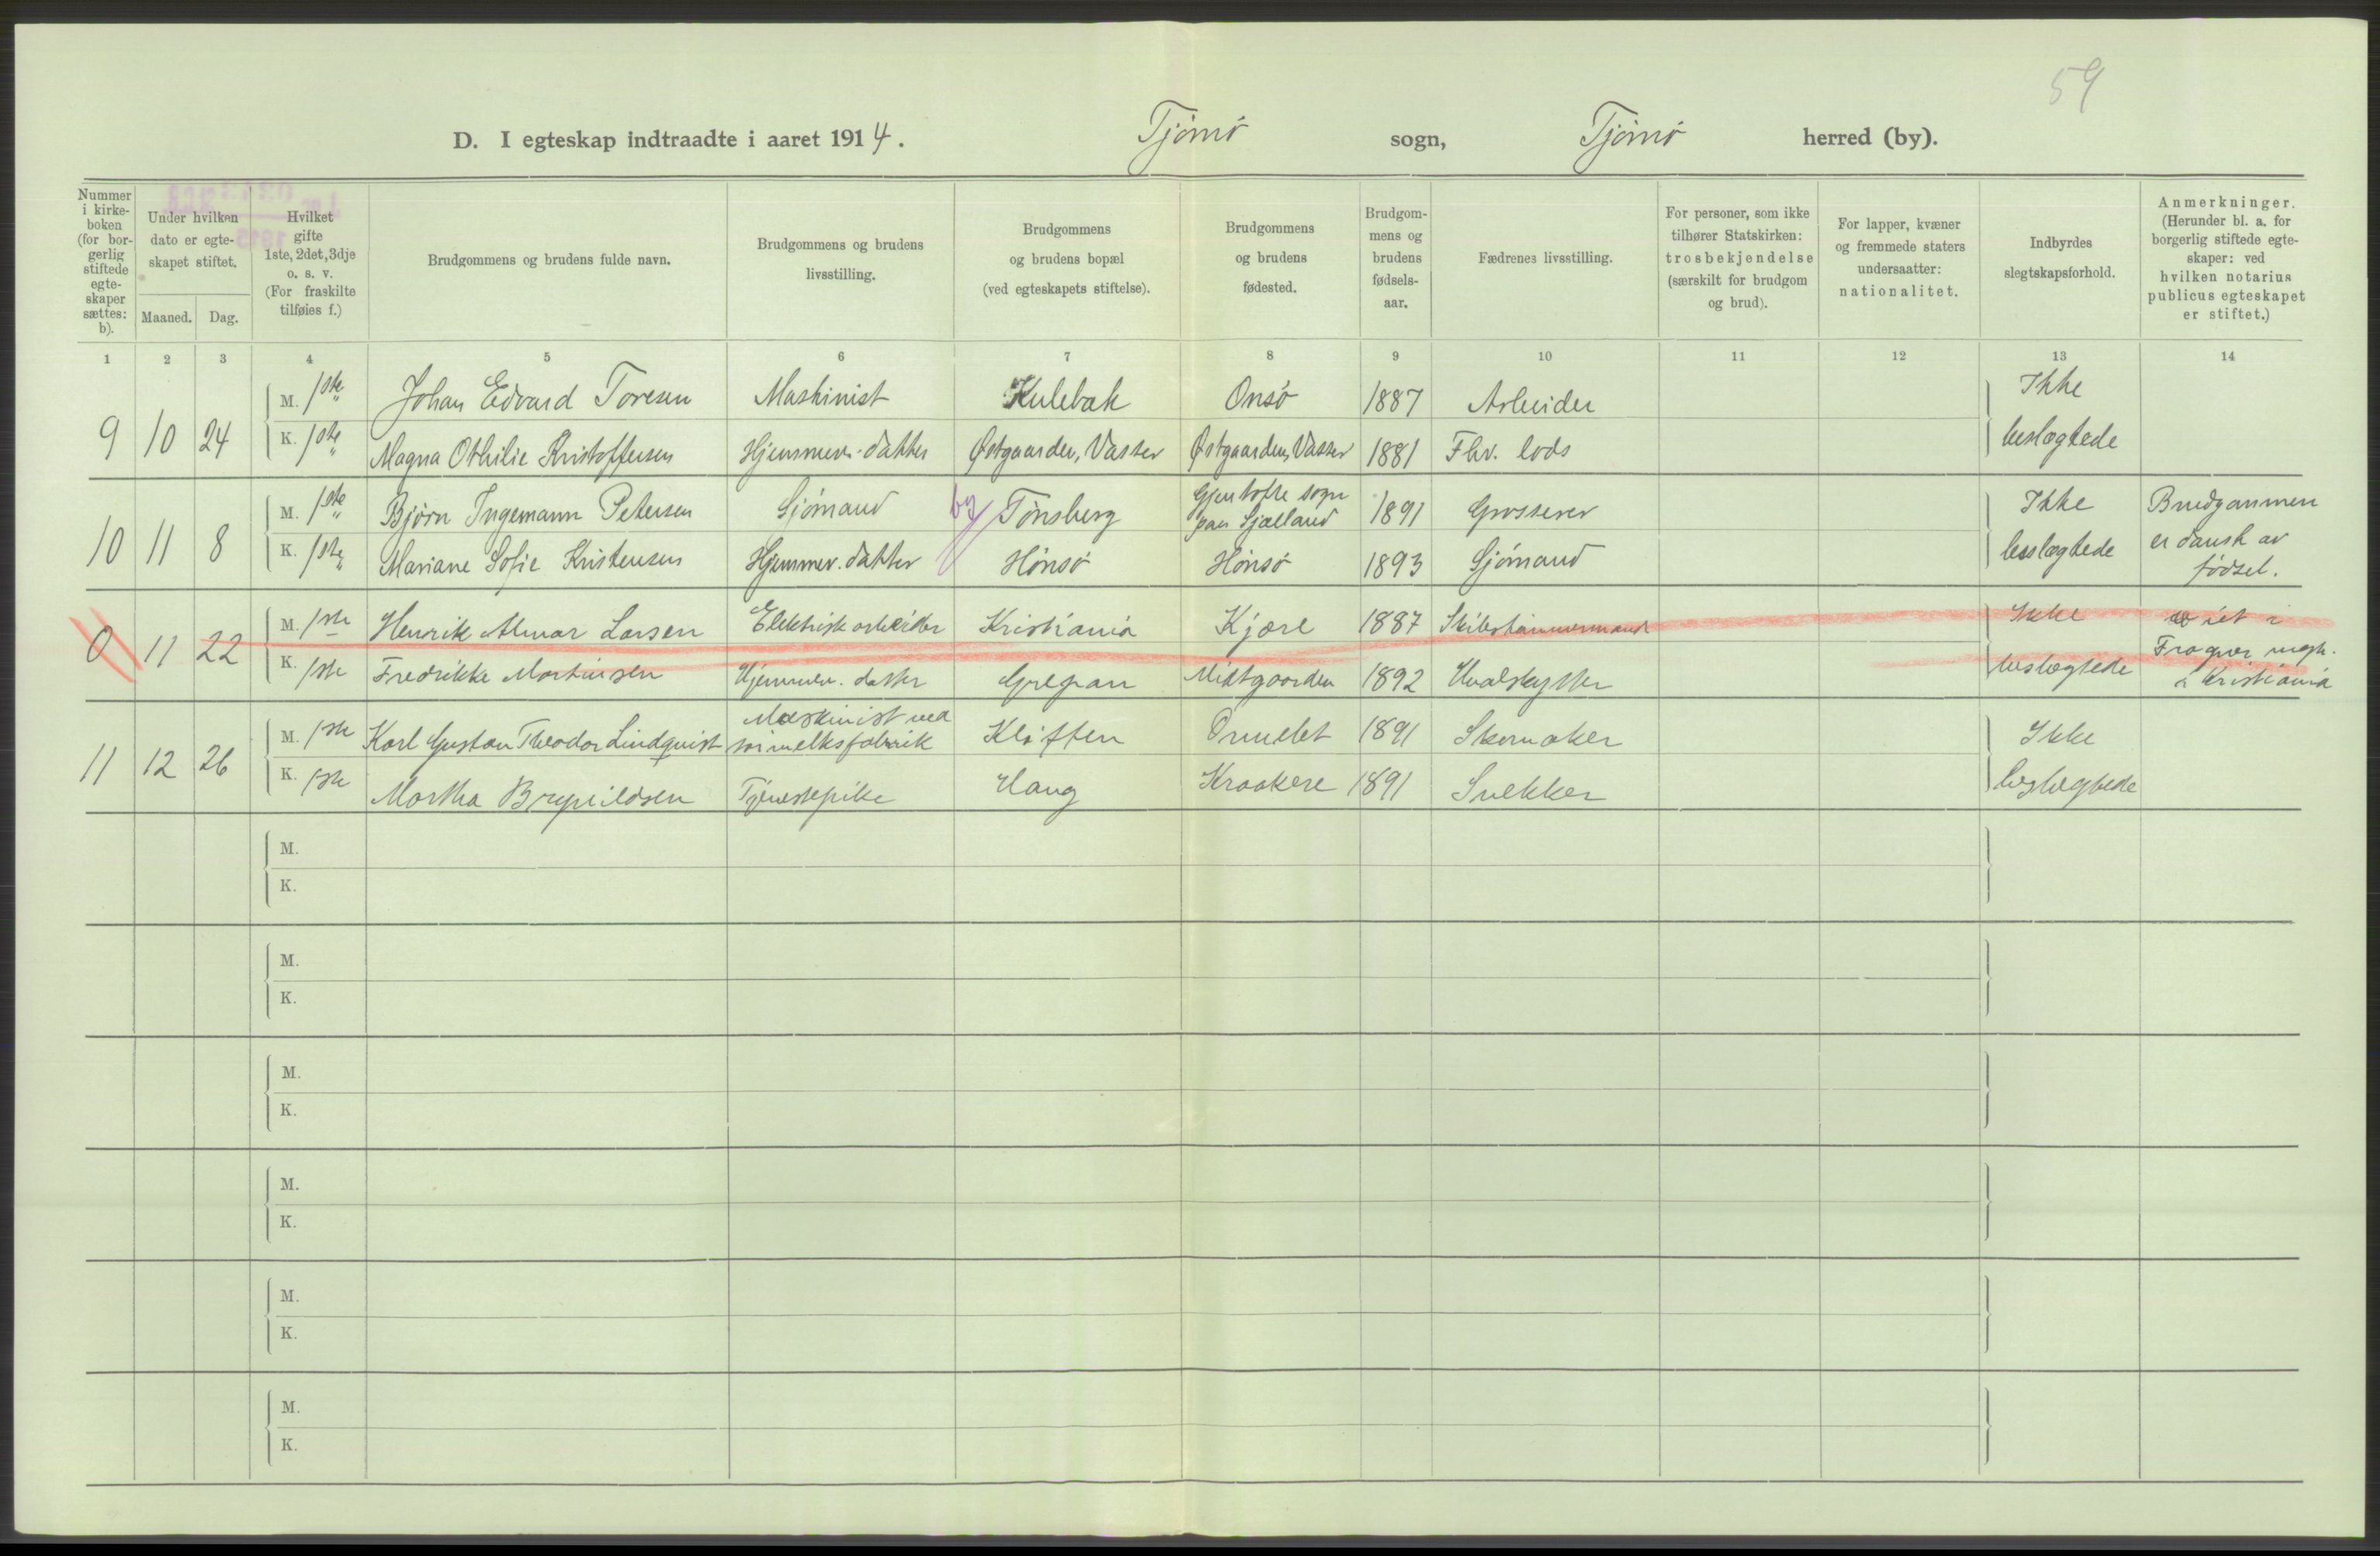 59
D. I egteskap indtraadte i aaret 1914. Tjømø sogn, Tjømø herred (by).
Nummer i kirkeboken (for borgerlig stiftede egteskaper sættes: b).
Under hvilken dato er egteskapet stiftet.
Maaned. Dag.
Hvilket gifte 1ste, 2det, 3dje o. s. v. (For fraskilte tilføies f.)
Brudgommens og brudens fulde navn.
Brudgommens og brudens livsstilling.
Brudgommens og brudens bopæl (ved egteskapets stiftelse).
Brudgommens og brudens fødested.
Brudgommens og brudens fødselsaar.
Fædrenes livsstilling.
For personer, som ikke tilhører Statskirken: trosbekjendelse (særskilt for brudgom og brud).
For lapper, kvæner og fremmede staters undersaatter: nationalitet.
Indbyrdes slegtskapsforhold.
Anmerkninger. (Herunder bl. a. for borgerlig stiftede egteskaper: ved hvilken notarius publicus egteskapet er stiftet.)
1 2 3 4 5 6 7 8 9 10 11 12 13 14
9 10 24 M. 1ste Johan Edvard Toresen Maskinist Kulebak Onsø 1887 Arbeider Ikke
K. 1ste Magna Othilie Kristoffersen Hjemmev. datter Østgaarden, Vasser Østgaarden, Vasser 1881 Fhv. lods beslægtede
10 11 8 M. 1ste Bjørn Ingemann Petersen Sjømand by Tønsberg Gjentofte sogn paa Sjælland 1891 Grosserer Ikke Brudgommen
K. 1ste Mariane Sofie Kristensen Hjemmev. datter Hønsø Hønsø 1893 Sjømand beslægtede er dansk av fødsel.
0 11 22 M. 1ste Henrik Almar Larsen Elektrisk arbeider Kristiania Kjære 1887 Skibstømmermand Ikke viet i
K. 1ste Fredrikke Martinsen Hjemmev. datter Grepan Midtgaarden 1892 Hvalskytter beslægtede Frogner mgh. i Kristiania
11 12 26 M. 1ste Karl Gustav Theodor Lindquist Maskinist ved tørmelksfabrik Kløften Ormelet 1891 Skomaker Ikke
K. 1ste Martha Brynildsen Tjenestepike Haug Kraakere 1891 Snekker beslegtede
M.
K.
M.
K.
M.
K.
M.
K.
M.
K.
M.
K.